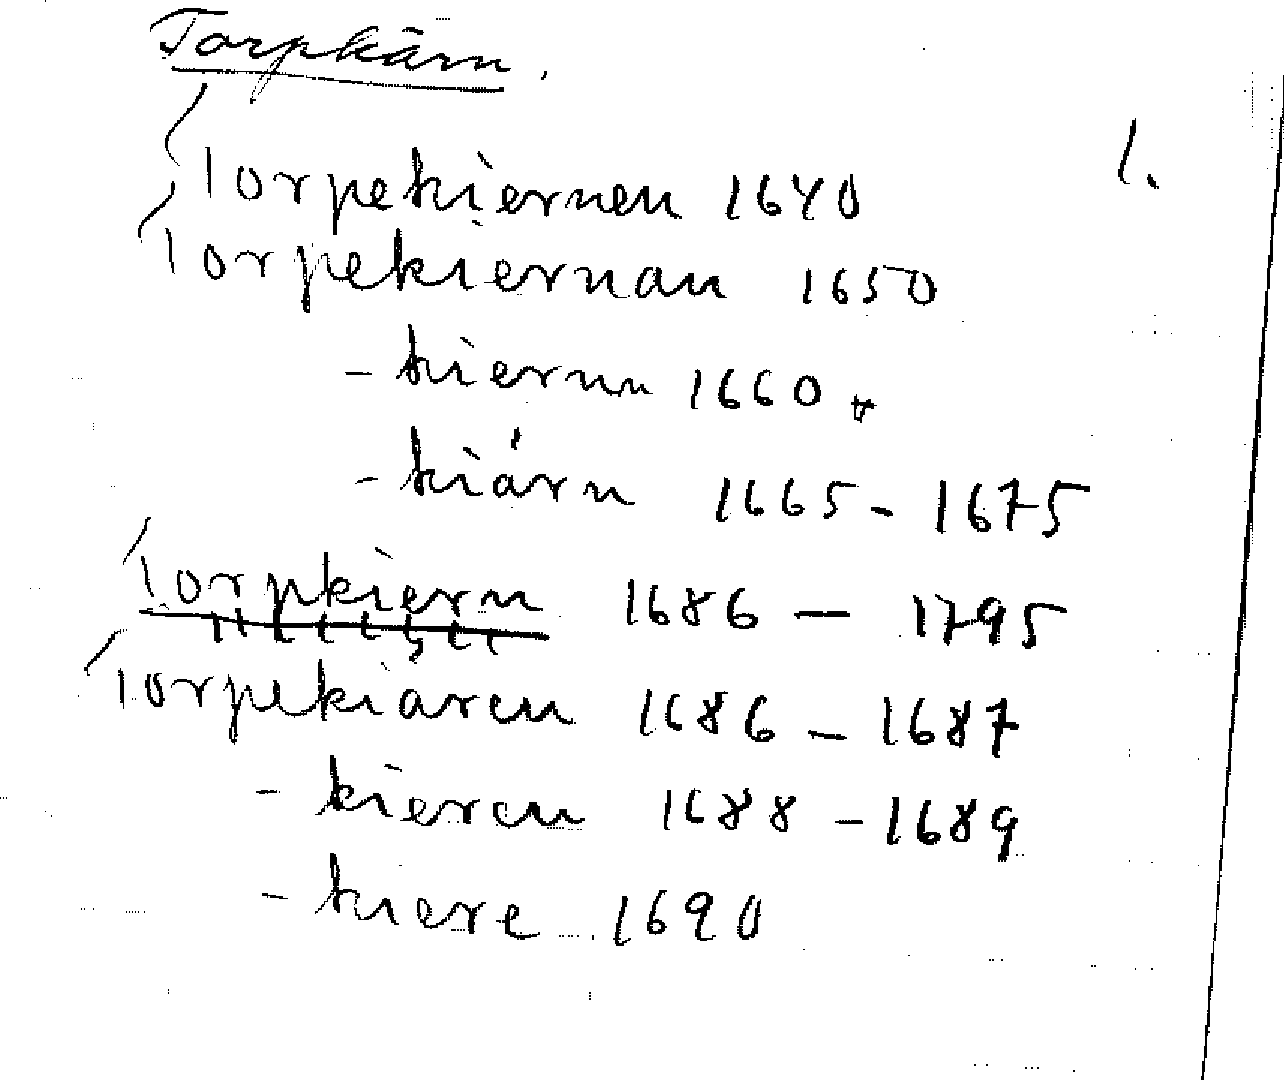 Torpkärn.
1.
Torpekiernen 1640
Torpekiernan 1650
- kiernn 1660
- kiärn 1665 - 1675
Torpkiern 1686 - 1795
Torpekiaren 1686 - 1687
- kieren 1688 - 1689
- kiere 1690